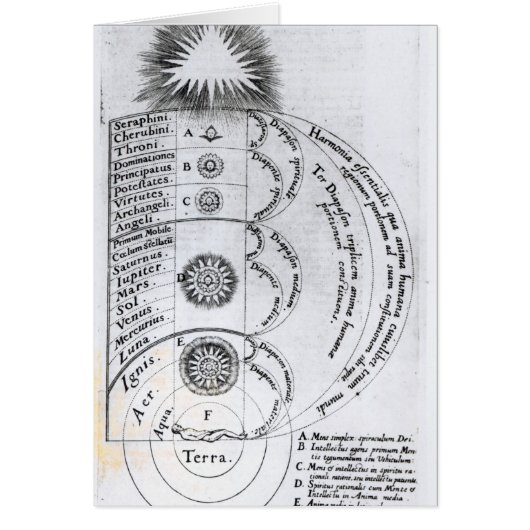 Seraphini.
Cherubini.
Throni.
Dominationes
Principatus.
Potestates.
Virtutes.
Archangeli.
Angeli.
Primum Mobile.
Cœlum Stellatū
Saturnus.
Iupiter.
Mars.
Sol.
Venus.
Mercurius.
Luna.
Ignis.
Aer.
Aqua.
Terra.
A
B
C
D
E
F
Diapason spirituale
Diapente spirituale
Diapason medium.
Diapente medium
Diapason materiale
Diapente materiale.
Harmonia essentialis qua anima humana cuiuslibet trium
regionum portionem ad suam constitutionem sibi rapit mundi
Ter Diapason triplicem animæ humanæ
portionem constituens.
A. Mens simplex spiraculum Dei.
B Intellectus agens primum Men
tis tegumentum seu Vehiculum.
C. Mens & intellectus in spiritu ra
tionali ratione, seu intellectu patiente.
D. Spiritus rationalis cum Mente &
Intellectu in Anima media.
E. Anima media in